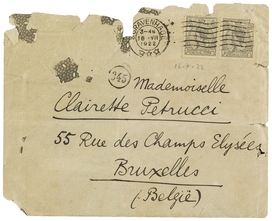 'S GRAVENHAGE
3-4N
18 VII
1922
345
Mademoiselle
Clairette Petrucci
55 Rue des Champs Elysées
Bruxelles
(België)